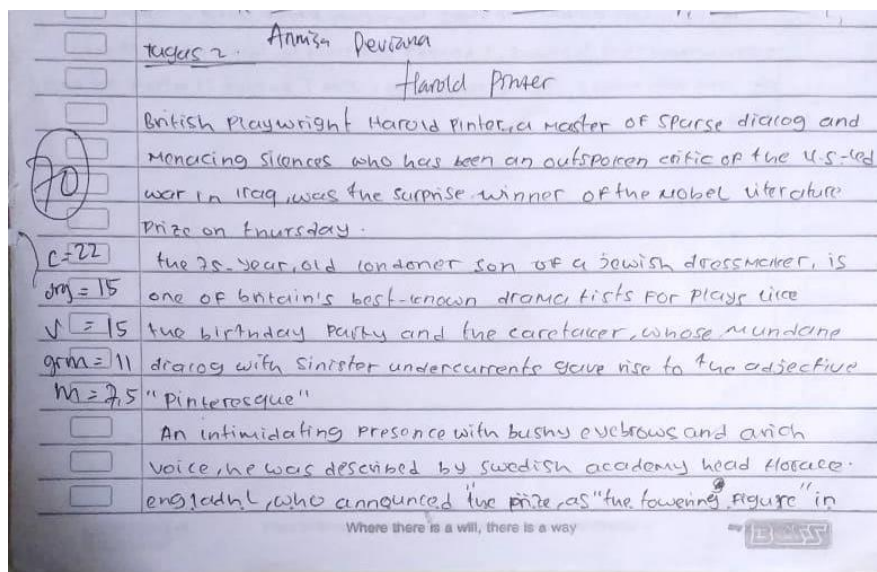 tugas 2. Annisa Deviana
Harold Pinter
British Playwright Harold Pinter, a master of sparse dialog and
menacing silences who has been an outspoken critic of the U.S-led
70
war in Iraq, was the surprise winner of the Nobel literature
prize on thursday.
C=22
the 75-year, old londoner son of a jewish dressmaker, is
org = 15
one of britain's best-known dramatists for plays like
V = 15
the birthday party and the caretaker, whose mundane
grm = 11
dialog with sinister undercurrents gave rise to the adjective
m = 7,5
"Pinteresque"
An intimidating presence with bushy eyebrows and a rich
voice, he was described by swedish academy head Horace.
who announced the prize, as "the towering figure" in
Where there is a will, there is a way
BOSS